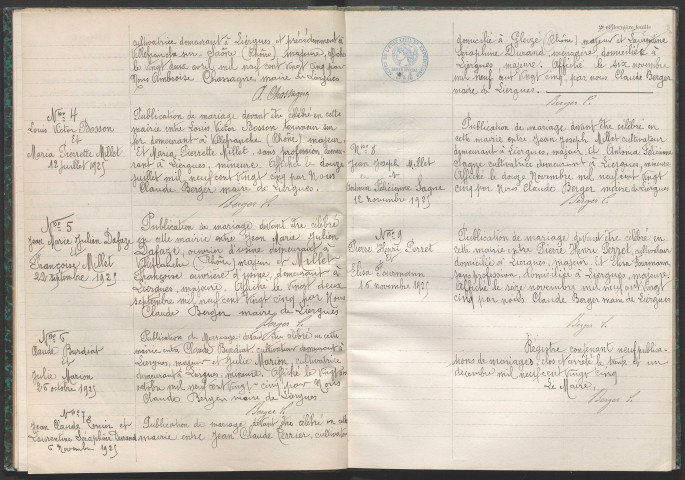 cultivatrice demeurant à Liergues et précédemment à
Villefranche sur Saône (Rhône) majeure, affiché
le vingt deux avril mil neuf cent vingt cinq par
Nous Ambroise Chassagne maire de Liergues
A. Chassagne
Nº 4
Louis Victor Bosson
et
Maria Pierrette Millet
12 juillet 1925
Publication de mariage devant être célébré en cette
mairie entre Louis Victor Bosson tourneur sur
fer demeurant à Villefranche (Rhône) majeur.
Et Maria Pierrette Millet, sans profession, demeu-
rant à Liergues, mineure. Affiché le douze
juillet mil neuf cent vingt cinq par Nous
Claude Berger maire de Liergues.
Berger C.
Nº 5
Jean Marie Julien Dafaze
et
Françoise Millet
22 septembre 1925
Publication de mariage devant être célébré
en cette mairie entre Jean Marie Julien
Dafaze, ouvrier d'usine demeurant à
Villefranche (Rhône) majeur et Millet
Françoise ouvrière d'usine, demeurant à
Liergues, majeure. Affiché le vingt deux
septembre mil neuf cent vingt cinq par Nous
Claude Berger maire de Liergues
Berger C.
Nº 6
Claude Burdiat
et
Julie Marion
26 octobre 1925
Publication de Mariage devant être célébré en cette
mairie entre Claude Burdiat cultivateur demeurant à
Liergues, majeur et Julie Marion, cultivatrice
demeurant à Liergues, mineure. Affiché le vingt six
octobre mil neuf cent vingt-cinq par Nous
Claude Berger maire de Liergues
Berger C.
Nº 7
Jean Claude Perrier et
Laurentine Séraphine Durand
6 Novembre 1925
Publication de mariage devant être célébré en cette
mairie entre Jean Claude Perrier, cultivateur
domicilié à Gleizé (Rhône) majeur et Laurentine
Séraphine Durand ménagère domiciliée à
Liergues, majeure. Affiché le six novembre
mil neuf cent vingt cinq, par nous Claude Berger
maire de Liergues.
Berger C.
Nº 8
Jean Joseph Millet
et
Antonia Félicienne Sagne
12 novembre 1925
Publication de mariage devant être célébré en
cette mairie entre Jean Joseph Millet cultivateur
demeurant à Liergues, majeur, et Antonia Félicienne
Sagne cultivatrice demeurant à Liergues, mineure
Affiché le douze Novembre mil neuf cent vingt
cinq par Nous Claude Berger maire de Liergues
Berger C.
Nº 9
Pierre Henri Perret
et
Elisa
16 novembre 1925
Publication de mariage devant être célébré en
cette mairie entre Pierre Henri Perret, cultivateur
domicilié à Liergues, majeur et Elisa
sans profession, domiciliée à Liergues, majeure.
Affiché le seize novembre mil neuf cent vingt
cinq par nous Claude Berger maire de Liergues
Berger C.
Registre contenant neuf publica-
tions de mariages, clos et arrêté le trente et un
décembre mil neuf cent vingt cinq
Le Maire,
Berger C.